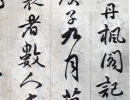 丹楓閣記
庚子九月
表者數人